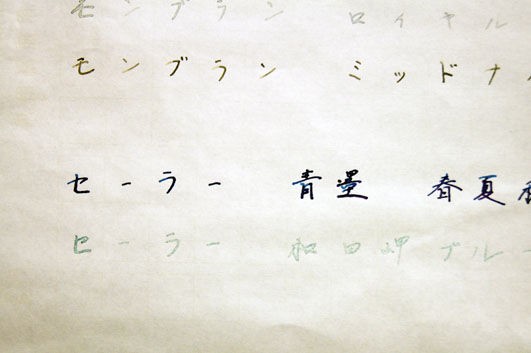 モンブラン ロイヤル
モンブラン ミッドナ
セーラー 青墨 春夏
セーラー 和田岬ブルー